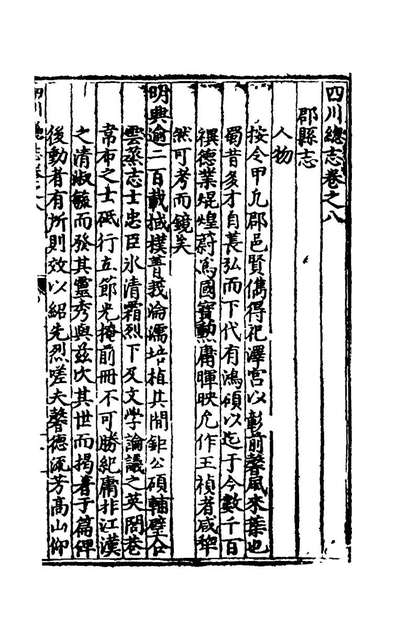 四川總志卷之八
郡縣志
人物
按令甲凡郡邑賢儁得祀澤宮以彰前馨風來葉也
蜀昔多才自萇弘而下代有鴻碩以迄于今數千百
禩德業焜煌蔚為國寶勲庸暉映允作王禎者咸犂
然可考而鏡矣
明興逾二百載棫樸菁莪淪濡培植其間鉅公碩輔璧合
雲蒸志士忠臣氷清霜烈下及文學論議之英閭巷
韋布之士砥行立節光掩前冊不可勝紀庸非江漢
之清淑毓而發其靈秀與茲次其世而揭著于篇俾
後動者有所則效以紹先烈嗟夫馨德流芳高山仰
四川總志卷之八